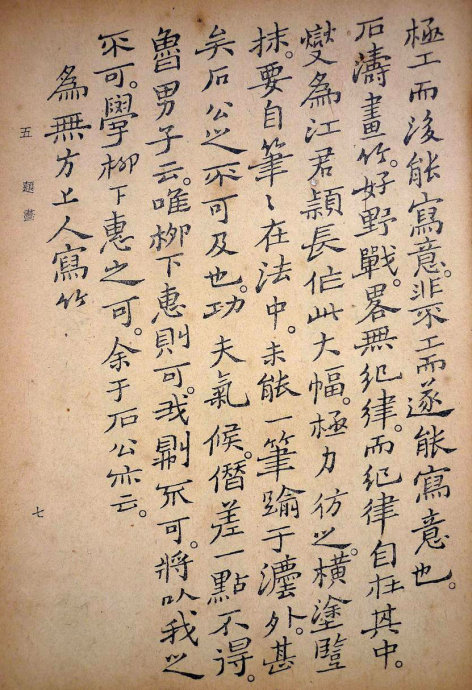 極工而後能寫意。非不工而遂能寫意也。
石濤畫竹。好野戰。畧無紀律。而紀律自在其中。
燮為江君。頴長作此大幅。極力仿之。橫塗豎
抹。要自筆〻在法中。未能一筆踰于灋外。甚
矣石公之不可及也。功夫氣候。僭差一點不得。
魯男子云。唯柳下惠則可。我剘不可。將以我之
不可。學柳下惠之可。余于石公亦云。
為無方上人寫竹
五 題畫
七